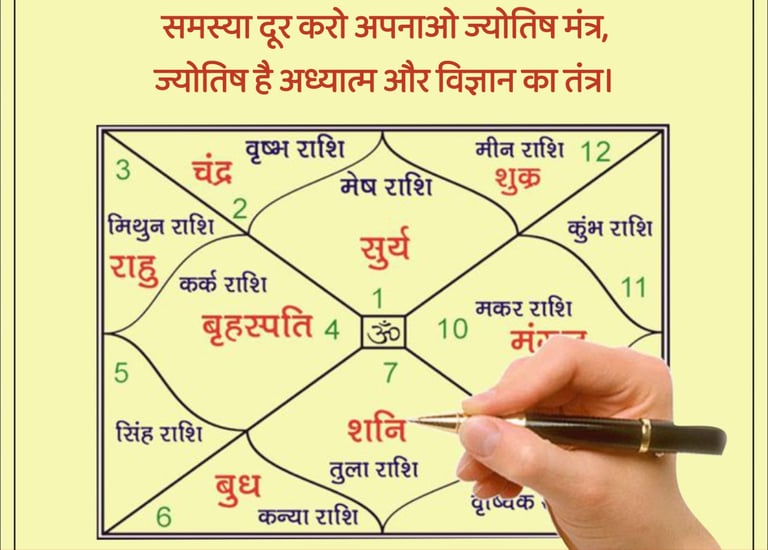 समस्या दूर करो अपनाओ ज्योतिष मंत्र,
ज्योतिष है अध्यात्म और विज्ञान का तंत्र।
वृष्भ राशि
मीन राशि 12
3
चंद्र
शुक्र
मेष राशि
2
मिथुन राशि
कुंभ राशि
राहु
सुर्य
कर्क राशि
11
1
मकर राशि
बृहस्पति 4
ॐ
10
5
7
सिंह राशि
शनि
तुला राशि
बुध
6
कन्या राशि